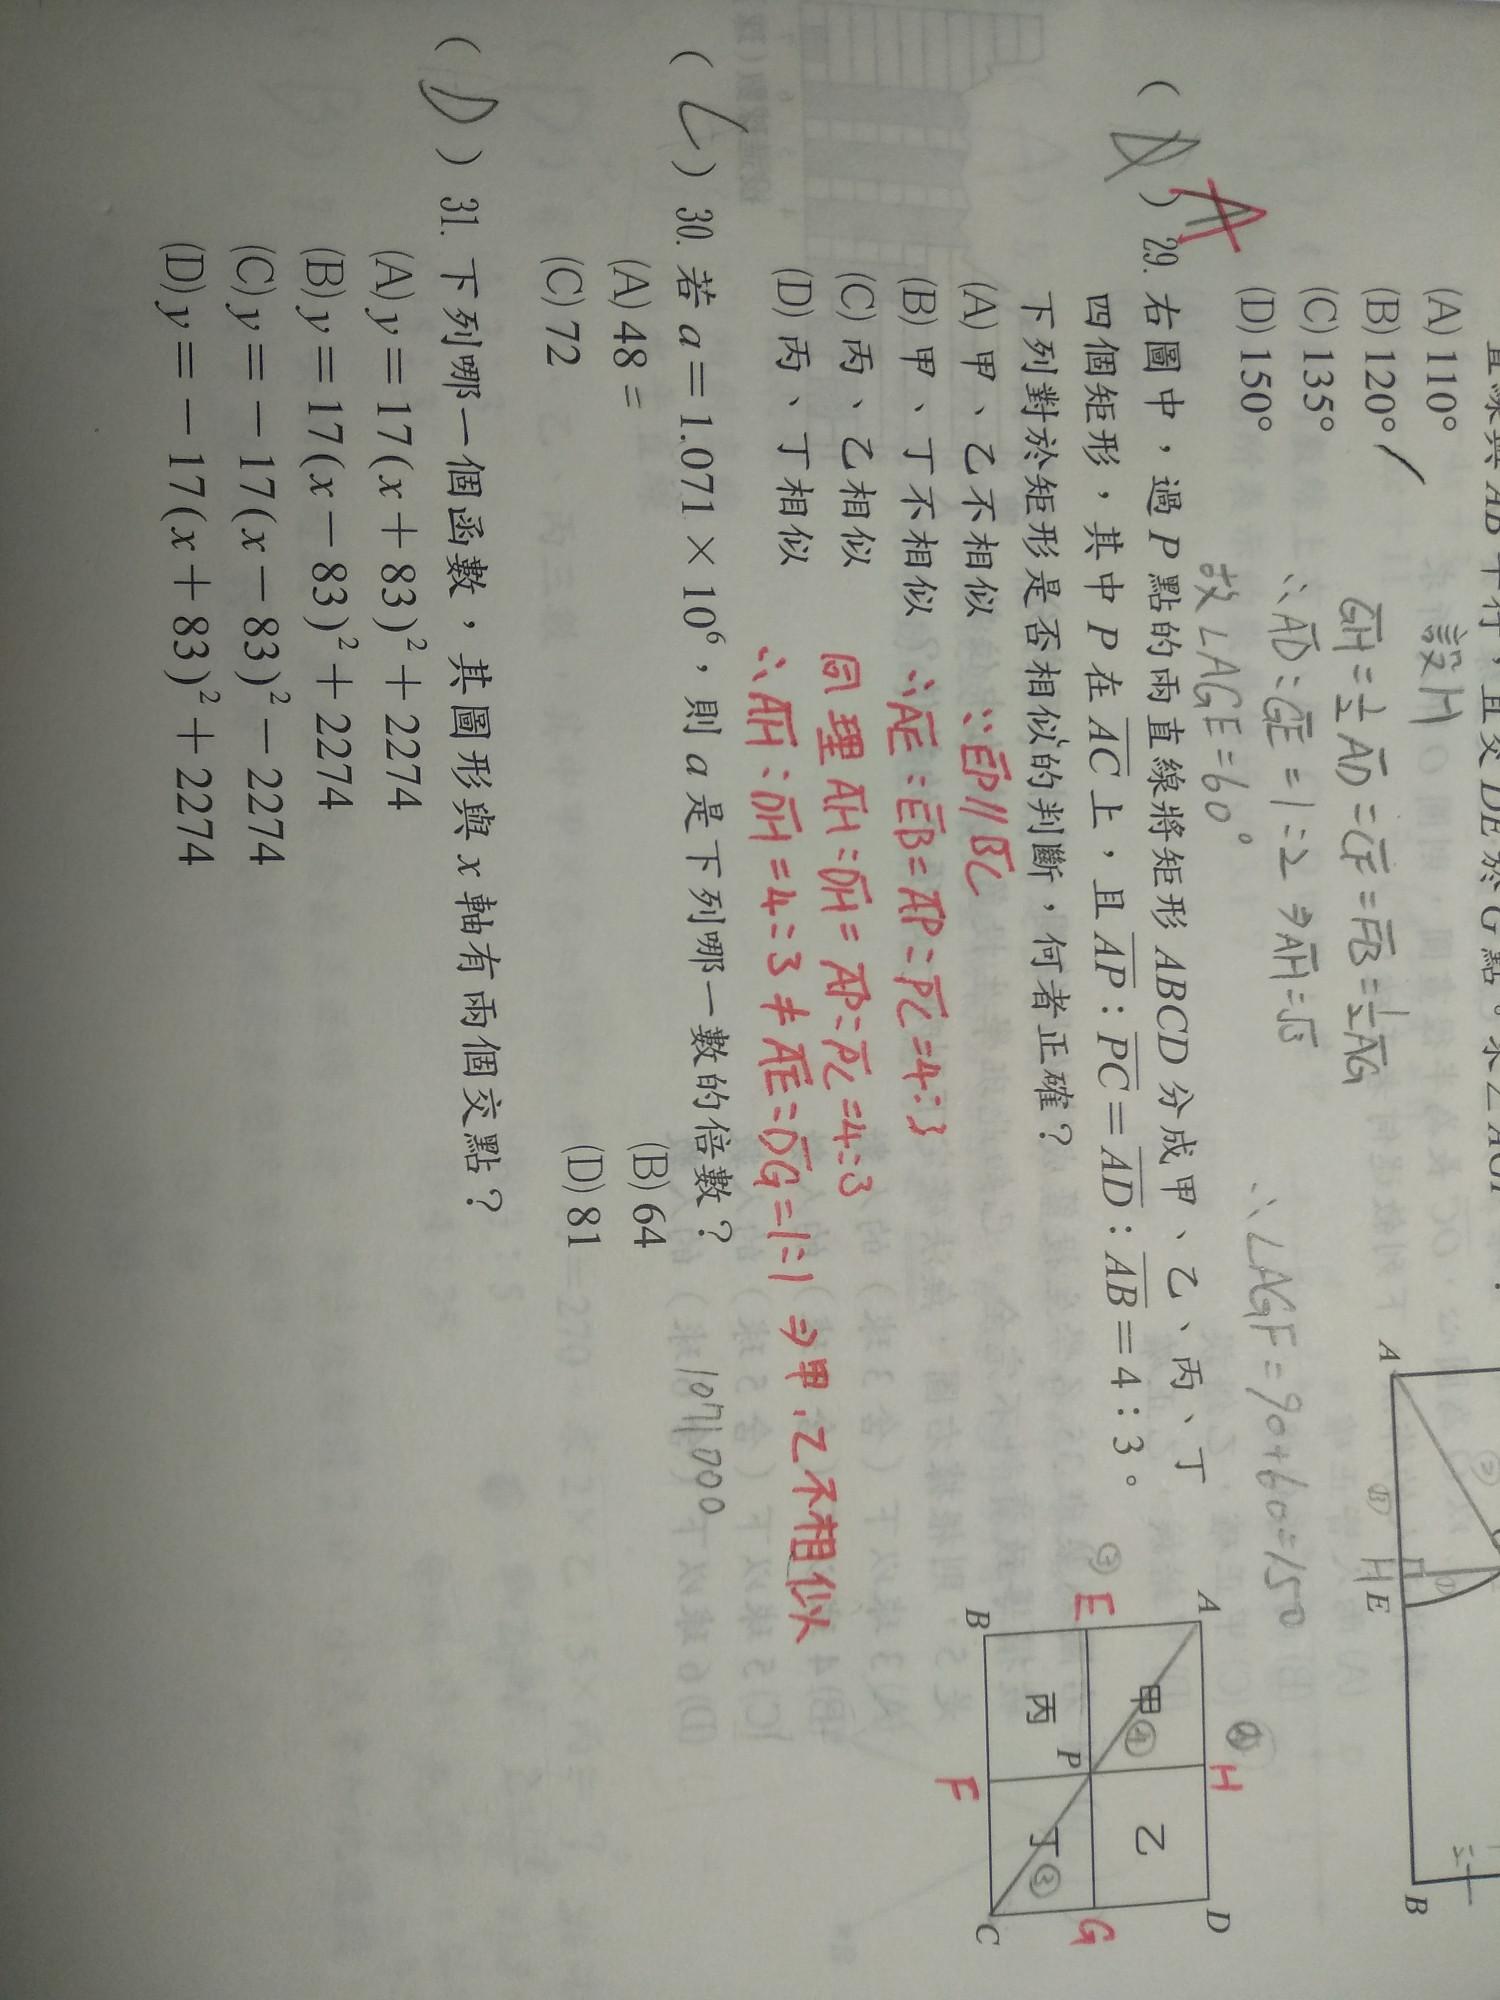 直線與AB平行,且交DE於G點。求∠AGF?
(A) 110°
(B) 120°
(C) 135°
(D) 150°
設H
GH=1/2 AD=CF=FB=1/2 AG
∴AD:GE=1:2⇒AH=√3
故∠AGE=60°
∴∠AGF=90+60=150
A
H
E
B
( D ) A 29. 右圖中,過P點的兩直線將矩形ABCD分成甲、乙、丙、丁
四個矩形,其中P在AC上,且AP:PC=AD:AB=4:3。
下列對於矩形是否相似的判斷,何者正確?
(A) 甲、乙不相似
(B) 甲、丁不相似
(C) 丙、乙相似
(D) 丙、丁相似
∵EP//BC
∴AE:EB=AP:PC=4:3
同理 AH:DH=AP:PC=4:3
∴AH:DH=4:3≠AE:DG=1:1⇒甲、乙不相似
A
H
D
③
④
E
甲④
乙
P
G
丙
丁③
B
F
C
( C ) 30. 若a=1.071×10⁶,則a是下列哪一數的倍數? 1071000
(A) 48 =
(B) 64
(C) 72
(D) 81
( D ) 31. 下列哪一個函數,其圖形與x軸有兩個交點?
(A) y=17(x+83)²+2274
(B) y=17(x-83)²+2274
(C) y=-17(x-83)²-2274
(D) y=-17(x+83)²+2274